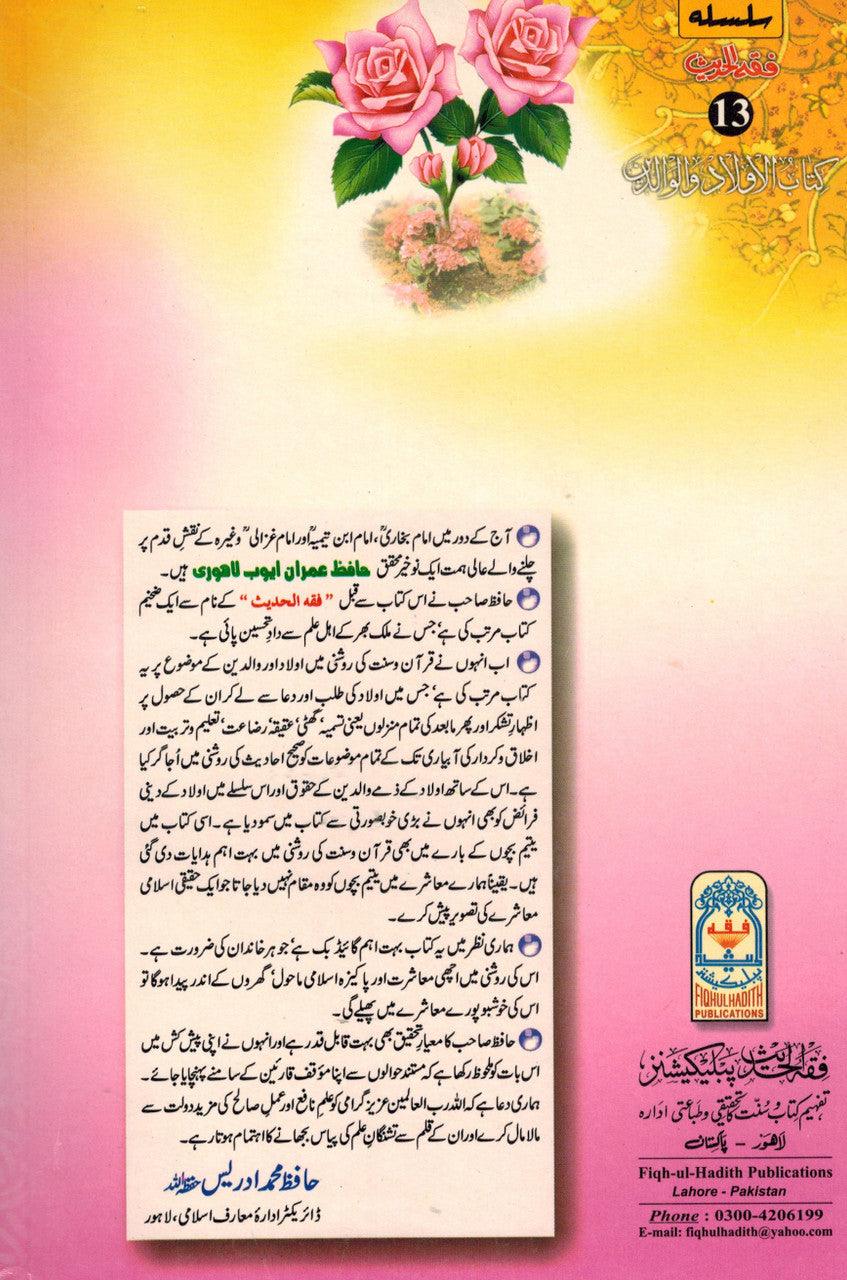 سلسله
فقه الحديث
13
کتاب الاولاد والوالدین
آج کے دور میں امام بخاریؒ، امام ابن تیمیہؒ اور امام غزالیؒ وغیرہ کے نقشِ قدم پر
چلنے والے عالی ہمت ایک نوخیز محقق حافظ عمران ایوب لاهوری ہیں۔
حافظ صاحب نے اس کتاب سے قبل "فقه الحدیث" کے نام سے ایک ضخیم
کتاب مرتب کی ہے‘ جس نے ملک بھر کے اہل علم سے دادِ تحسین پائی ہے۔
اب انہوں نے قرآن وسنت کی روشنی میں اولاد اور والدین کے موضوع پر یہ
کتاب مرتب کی ہے‘ جس میں اولاد کی طلب اور دعا سے لے کر ان کے حصول پر
اظہارِ تشکر اور پھر مابعد کی تمام منزلوں یعنی تسمیہ‘ گھٹی‘ عقیقہ‘ رضاعت‘ تعلیم وتربیت اور
اخلاق وکردار کی آبیاری تک کے تمام موضوعات کو صحیح احادیث کی روشنی میں اُجاگر کیا
ہے۔ اس کے ساتھ اولاد کے ذمے والدین کے حقوق اور اس سلسلے میں اولاد کے دینی
فرائض کو بھی انہوں نے بڑی خوبصورتی سے کتاب میں سمو دیا ہے۔ اسی کتاب میں
یتیم بچوں کے بارے میں بھی قرآن وسنت کی روشنی میں بہت اہم ہدایات دی گئی
ہیں۔ یقیناً ہمارے معاشرے میں یتیم بچوں کو وہ مقام نہیں دیا جاتا جو ایک حقیقی اسلامی
معاشرے کی تصویر پیش کرے۔
ہماری نظر میں یہ کتاب بہت اہم گائیڈ بک ہے‘ جو ہر خاندان کی ضرورت ہے۔
اس کی روشنی میں اچھی معاشرت اور پاکیزہ اسلامی ماحول‘ گھروں کے اندر پیدا ہوگا تو
اس کی خوشبو پورے معاشرے میں پھیلے گی۔
حافظ صاحب کا معیارِ تحقیق بھی بہت قابل قدر ہے اور انہوں نے اپنی پیش کش میں
اس بات کو ملحوظ رکھا ہے کہ مستند حوالوں سے اپنا مؤقف قارئین کے سامنے پہنچایا جائے۔
ہماری دعا ہے کہ اللہ رب العالمین عزیز گرامی کو علمِ نافع اور عملِ صالح کی مزید دولت سے
مالا مال کرے اور ان کے قلم سے تشنگانِ علم کی پیاس بجھانے کا اہتمام ہوتا رہے۔
حافظ محمد ادریس حفظہ اللہ
ڈائریکٹر ادارۂ معارف اسلامی، لاہور
فقه
الحدیث
پبلیکیشنز
FIQHULHADITH
PUBLICATIONS
فقه الحدیث پبلیکیشنز
تفہیم کتاب و سنّت کا تحقیقی و طباعتی ادارہ
لاہور - پاکستان
Fiqh-ul-Hadith Publications
Lahore - Pakistan
Phone : 0300-4206199
E-mail: fiqhulhadith@yahoo.com